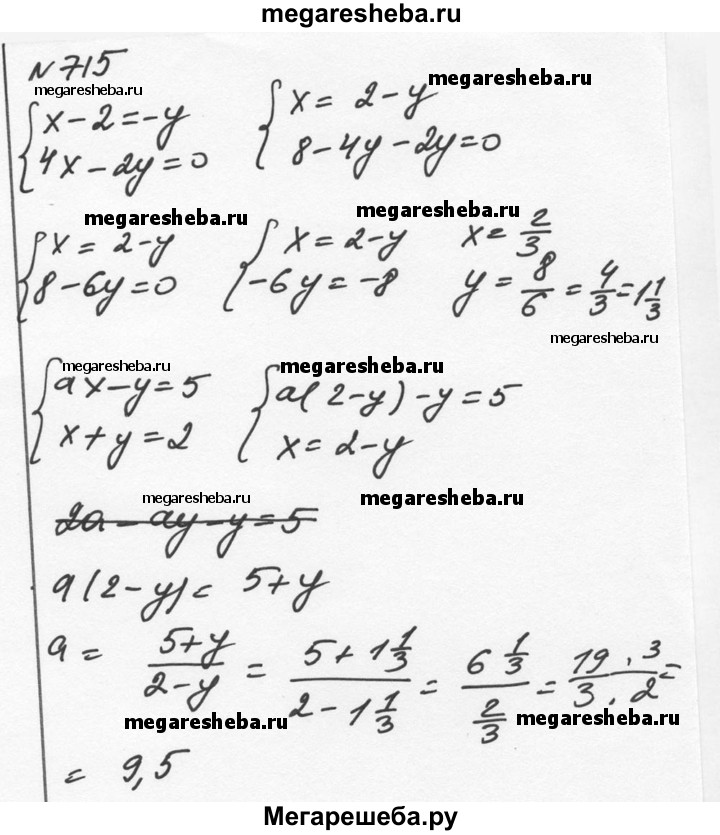 megaresheba.ru
N 715
megaresheba.ru megaresheba.ru
{ x - 2 = -y { x = 2 - y
4x - 2y = 0 8 - 4y - 2y = 0
megaresheba.ru megaresheba.ru
{ x = 2 - y { x = 2 - y x = 2/3
8 - 6y = 0 -6y = -8 y = 8/6 = 4/3 = 1 1/3
megaresheba.ru
megaresheba.ru megaresheba.ru
{ ax - y = 5 { a(2 - y) - y = 5
x + y = 2 x = 2 - y
megaresheba.ru megaresheba.ru
2a - ay - y = 5
a(2 - y) = 5 + y
a = (5 + y)/(2 - y) = (5 + 1 1/3)/(2 - 1 1/3) = (6 1/3)/(2/3) = (19 · 3)/(3 · 2) =
megaresheba.ru megaresheba.ru
= 9,5
Мегарешеба.ру